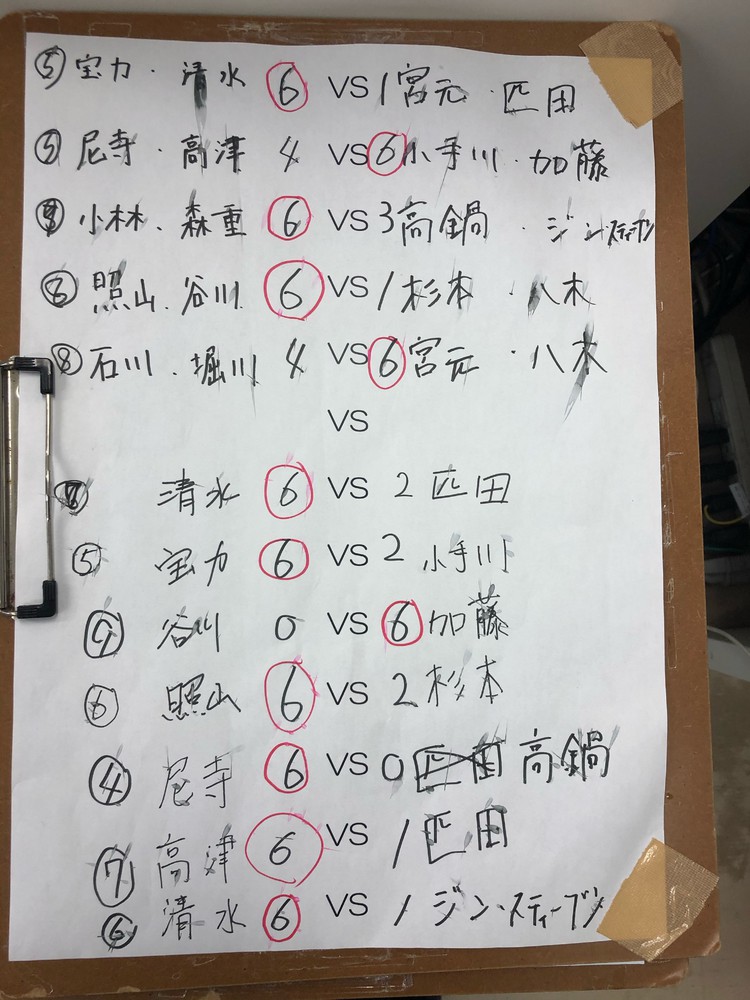 ⑤ 宝力・清水 6 VS 1 宮元・匹田
⑤ 尼寺・高津 4 VS 6 小手川・加藤
小林・森重 6 VS 3 高鍋・ジン・スティーブン
⑥ 照山・谷川 6 VS 1 杉本・八木
⑧ 石川・堀川 4 VS 6 宮元・八木
VS
清水 6 VS 2 匹田
⑤ 宝力 6 VS 2 小手川
⑨ 谷川 0 VS 6 加藤
⑥ 照山 6 VS 2 杉本
④ 尼寺 6 VS 0 匹田 高鍋
⑦ 高津 6 VS 1 匹田
⑥ 清水 6 VS 1 ジン・スティーブン